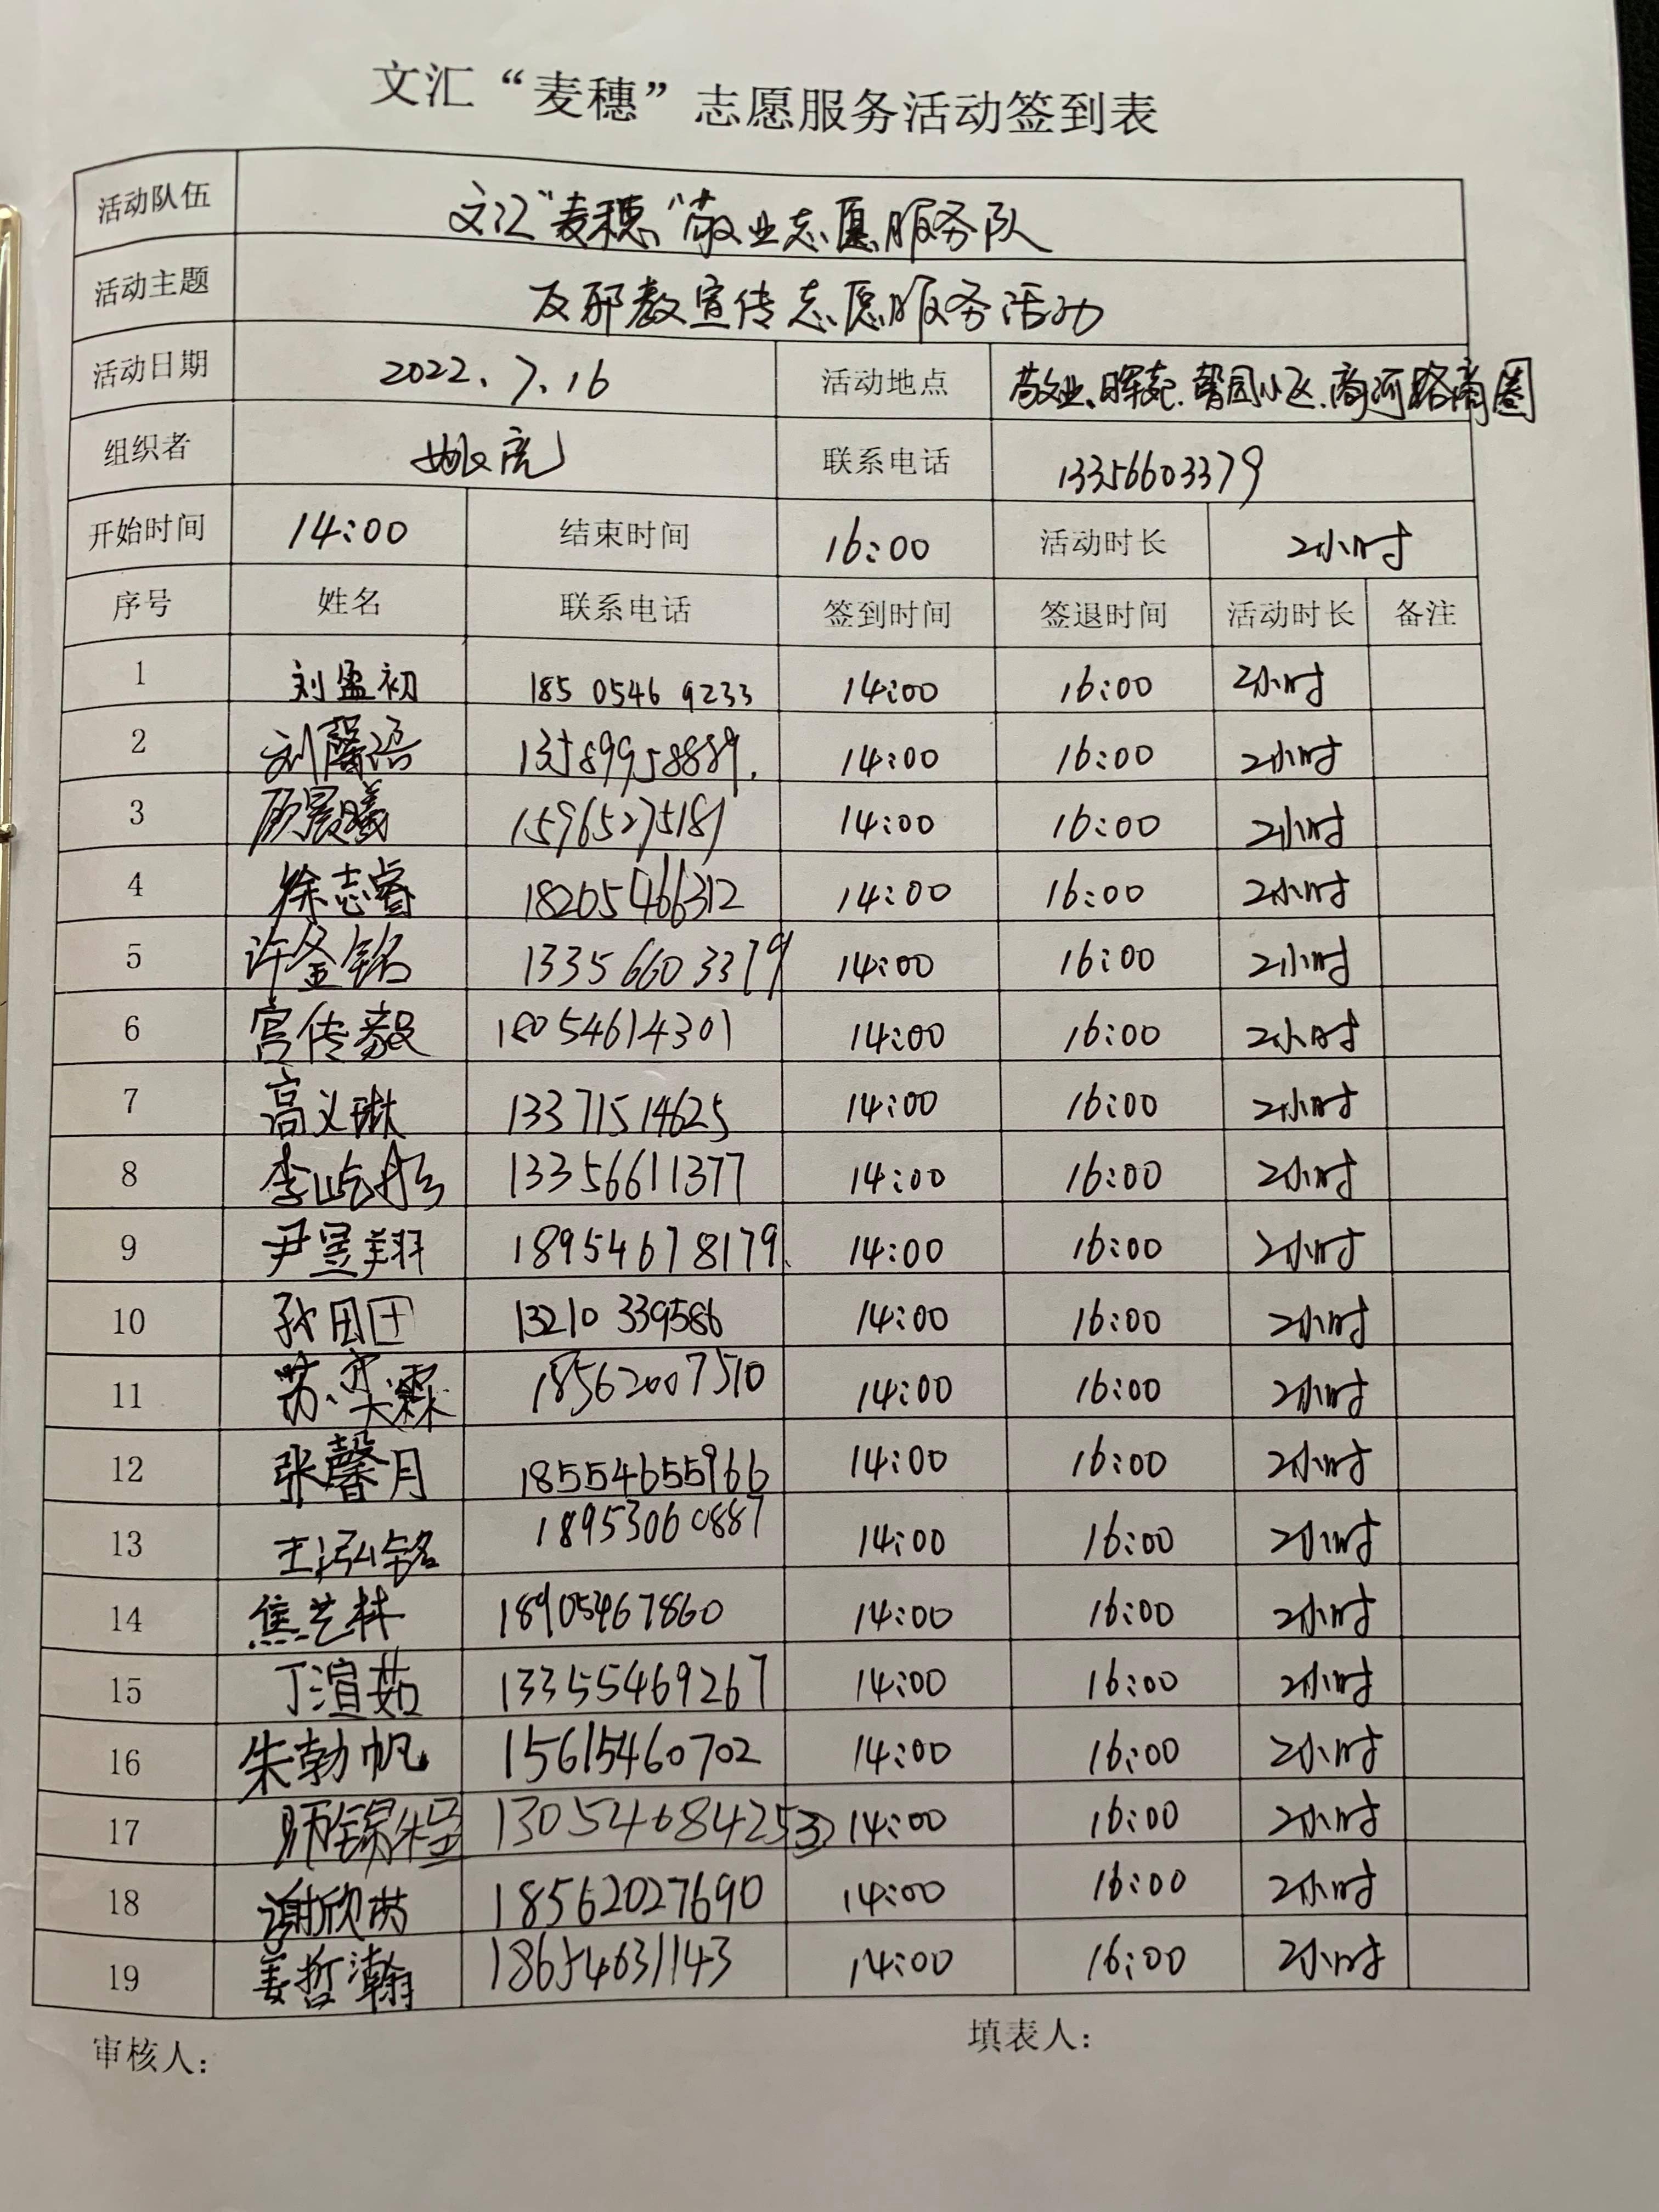 文汇“麦穗”志愿服务活动签到表
活动队伍 文汇“麦穗”敬业志愿服务队
活动主题 反邪教宣传志愿服务活动
活动日期 2022.7.16 活动地点 敬业、晖苑、馨园小区、商河路商圈
组织者 姚亮 联系电话 13356603379
开始时间 14:00 结束时间 16:00 活动时长 2小时
序号 姓名 联系电话 签到时间 签退时间 活动时长 备注
1 刘孟初 185 0546 9233 14:00 16:00 2小时
2 刘馨语 13589958889. 14:00 16:00 2小时
3 顾晨曦 15965275187 14:00 16:00 2小时
4 徐志睿 18205466312 14:00 16:00 2小时
5 许金铭 13356603379 14:00 16:00 2小时
6 宫传毅 18054614301 14:00 16:00 2小时
7 高义琳 13371514625 14:00 16:00 2小时
8 李屹彤 13356611377 14:00 16:00 2小时
9 尹昱翔 18954678179 14:00 16:00 2小时
10 孙田田 13210339586 14:00 16:00 2小时
11 苏奕霖 18562007510 14:00 16:00 2小时
12 张馨月 18554655966 14:00 16:00 2小时
13 王泓铭 18953060887 14:00 16:00 2小时
14 焦艺林 18905467860 14:00 16:00 2小时
15 丁渲茹 13355469267 14:00 16:00 2小时
16 朱勃帆 15615460702 14:00 16:00 2小时
17 13054684253 14:00 16:00 2小时
18 谢欣芮 18562027690 14:00 16:00 2小时
19 姜哲瀚 18654631143 14:00 16:00 2小时
审核人: 填表人: